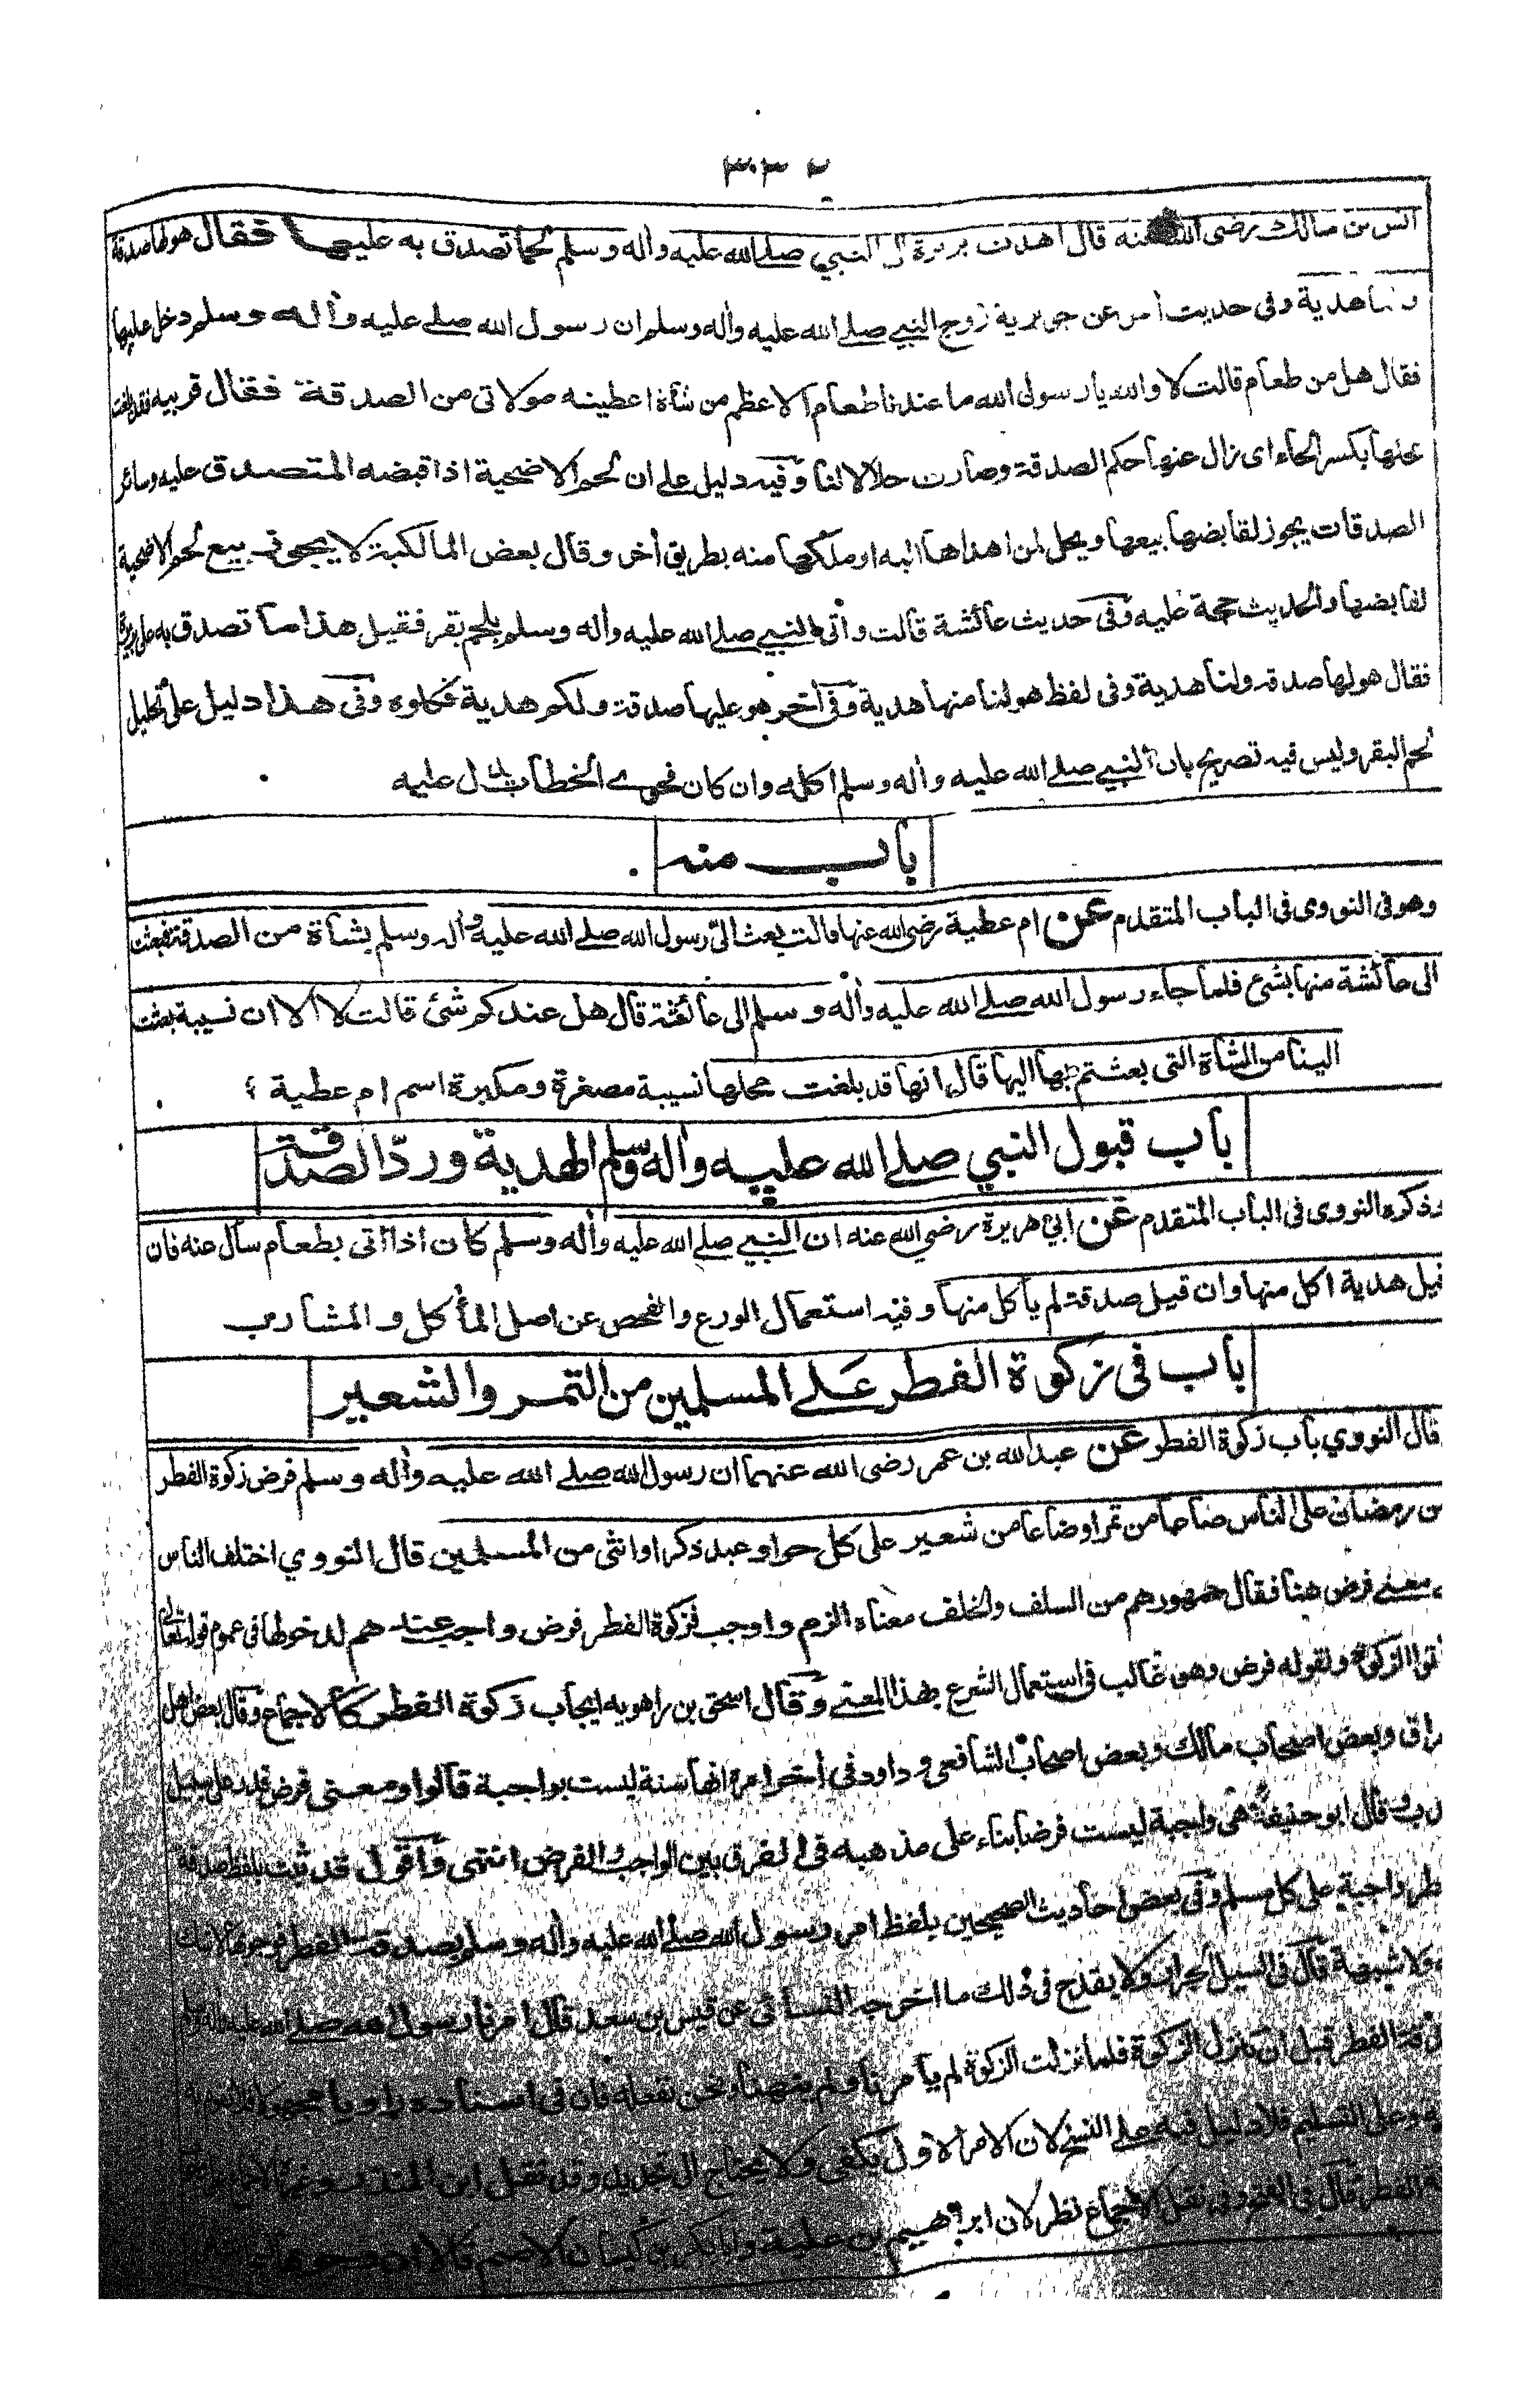 ٣٠٣
انس بن مالك رضى الله عنه قال اهدت بريرة الى النبي صلے الله عليه واٰله وسلم لحما تصدق به عليها فقال هولها صدقة
ولنا هدية وفى حديث اٰخر عن جويرية زوج النبي صلے الله عليه واٰله وسلم ان رسول الله صلے عليه واٰله وسلم دخل عليها
فقال هل من طعام قالت لا والله يا رسول الله ما عندنا طعام الا عظم من شاة اعطيته مولاتى من الصدقة فقال قربيه فقد بلغت
محلها بكسر الحاء اى زال عنها حكم الصدقة وصارت حلالا لنا وفيه دليل على ان لحم الاضحية اذا قبضه المتصدق عليه وسائر
الصدقات يجوز لقابضها بيعها ويحل لمن اهداها اليه او ملكها منه بطريق اٰخر وقال بعض المالكية لا يجوز بيع لحم الاضحية
لقابضها والحديث حجة عليه وفى حديث عائشة قالت واُتى النبي صلے الله عليه واٰله وسلم بلحم بقر فقيل هذا ما تصدق به على بريرة
فقال هو لها صدقة ولنا هدية وفى لفظ هو لنا منها هدية وفى اٰخر هو عليها صدقة ولكم هدية فكلوه وفى هذا دليل على تحليل
لحم البقر وليس فيه تصريح بان النبي صلے الله عليه واٰله وسلم اكله وان كان فحوے الخطاب يدل عليه
باب منه
وهو فى النووى فى الباب المتقدم عن ام عطية رضى الله عنها قالت بعث الىّ رسول الله صلے الله عليه واٰله وسلم بشاة من الصدقة فبعثت
الى عائشة منها بشئ فلما جاء رسول الله صلے الله عليه واٰله وسلم الى عائشة قال هل عندكم شئ قالت لا الا ان نسيبة بعثت
الينا من الشاة التى بعثتم بها اليها قال انها قد بلغت محلها نسيبة مصغرة ومكبرة اسم ام عطية
باب قبول النبي صلے الله عليه واٰله وسلم الهدية وردّ الصدقة
وذكره النووى فى الباب المتقدم عن ابي هريرة رضي الله عنه ان النبي صلے الله عليه واٰله وسلم كان اذا اتى بطعام سأل عنه فان
قيل هدية اكل منها وان قيل صدقة لم ياكل منها وفيه استعمال الورع والفحص عن اصل المأكل والمشارب
باب فى زكوة الفطر عَلے المسلمين من التمر والشعير
قال النووي باب زكوة الفطر عن عبد الله بن عمر رضى الله عنهما ان رسول الله صلے الله عليه واٰله وسلم فرض زكوة الفطر
من رمضان على الناس صاعا من تمر او صاعا من شعير على كل حر او عبد ذكر او انثى من المسلمين قال النووي اختلف الناس
معنے فرض هنا فقال جمهورهم من السلف والخلف معناه الزم واوجب فزكوة الفطر فرض واجب عندهم لدخولها فى عموم قوله تعالى
اٰتوا الزكوة ولقوله فرض وهى غالب فى استعمال الشرع بهذا المعنے وقال اسحق بن راهويه ايجاب زكوة الفطر كالاجماع وقال بعض اهل
راق وبعض اصحاب مالك وبعض اصحاب الشافعى وداود فى اٰخر امره انها سنة ليست بواجبة قالوا ومعنى فرض قدر على سبيل
ب وقال ابو حنيفة هى واجبة ليست فرضا بناء على مذهبه فى الفرق بين الواجب والفرض انتهى واقول قد ثبت بلفظ صدقة
طر واجبة على كل مسلم وفى بعض احاديث الصحيحين بلفظ امر رسول الله صلے الله عليه واٰله وسلم بصدقة الفطر فوجوبها لا شك
ولا شبهة قال فى السيل الجرار ولا يقدح فى ذلك ما اخرجه النسائى عن قيس بن سعد قال امرنا رسول الله صلے الله عليه واٰله وسلم
دقة الفطر قبل ان تنزل الزكوة فلما نزلت الزكوة لم يامرنا ولم ينهنا ونحن نفعله فان فى اسناده راويا مجهولا
وعلى التسليم فلا دليل فيه على النسخ لان الامر الاول يكفى ولا يحتاج الى تجديد وقد نقل ابن المنذر وغيره الاجماع
الفطر قال فى الفتح وفى نقل الاجماع نظر لان ابراهيم بن علية وابا بكر بن كيسان الاصم قالا ان وجوبها